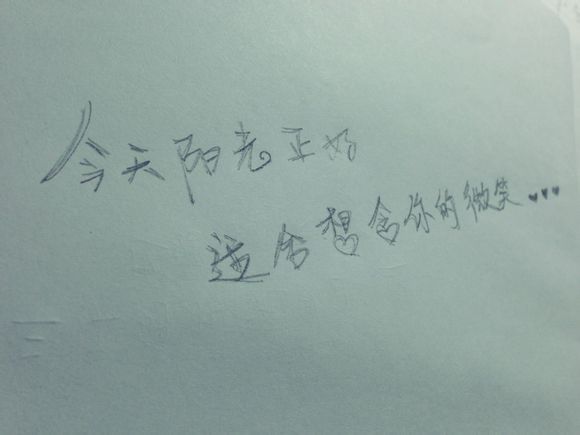 今天阳光正好
适合想念你的微笑♥♥♥